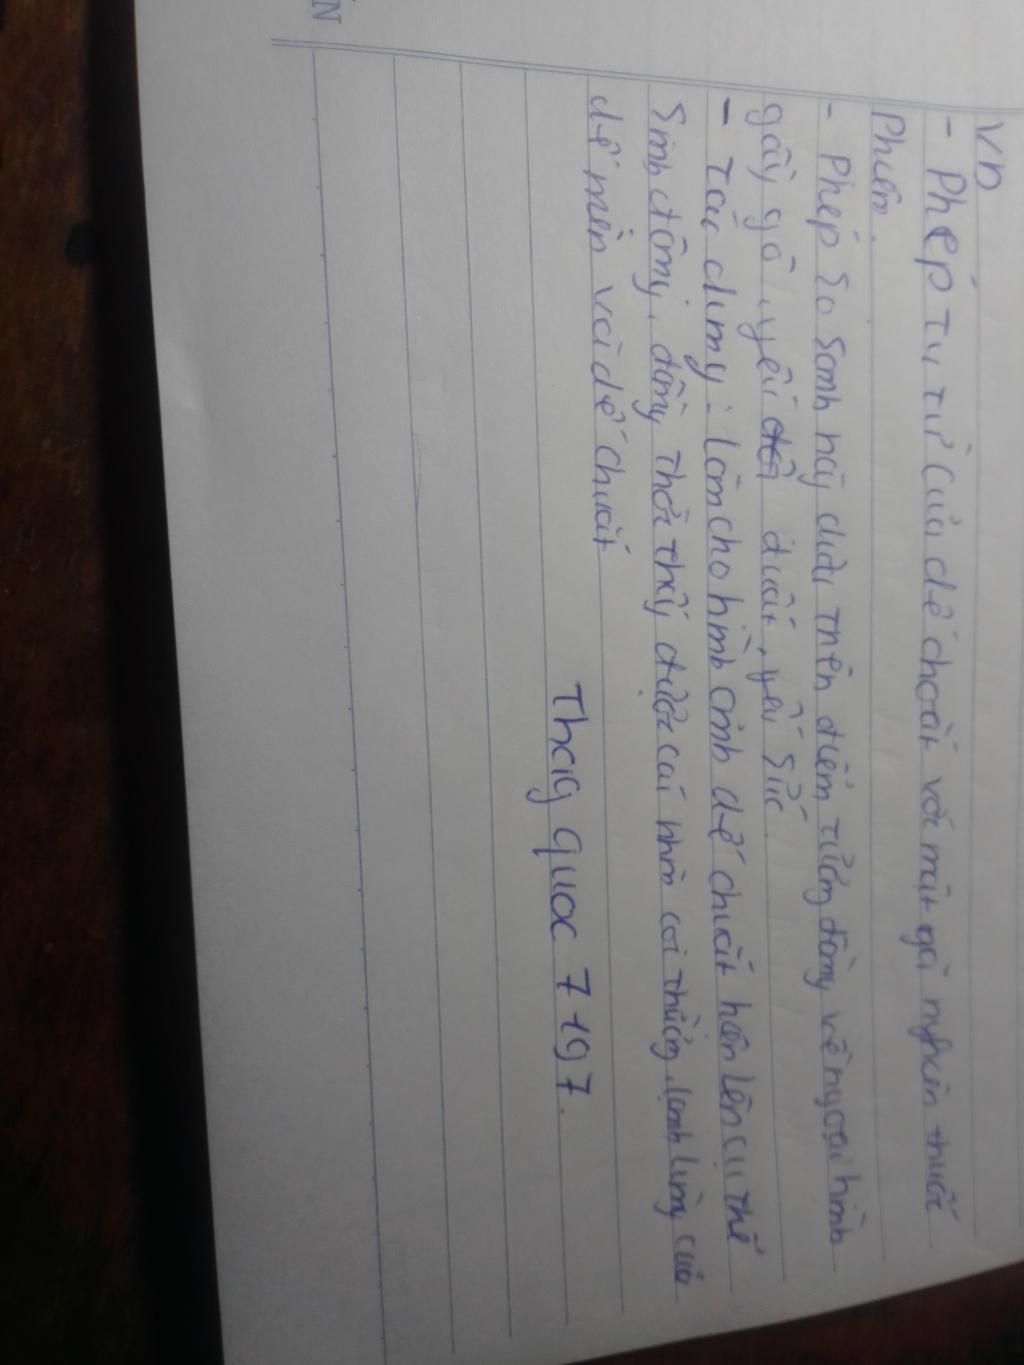 VD
- Phép tu từ của dế choắt với một gã nghiện thuốc
Phiện.
- Phép so sánh này dựa trên điểm tương đồng về ngoại hình
gầy gò, yếu đuối, yếu sức
- Tác dụng: làm cho hình ảnh dế choắt hiện lên cụ thể
Sinh động, đồng thời thấy được cái nhìn coi thường, lạnh lùng của
dế mèn với dế choắt
Thaig quoc 7 197.
N